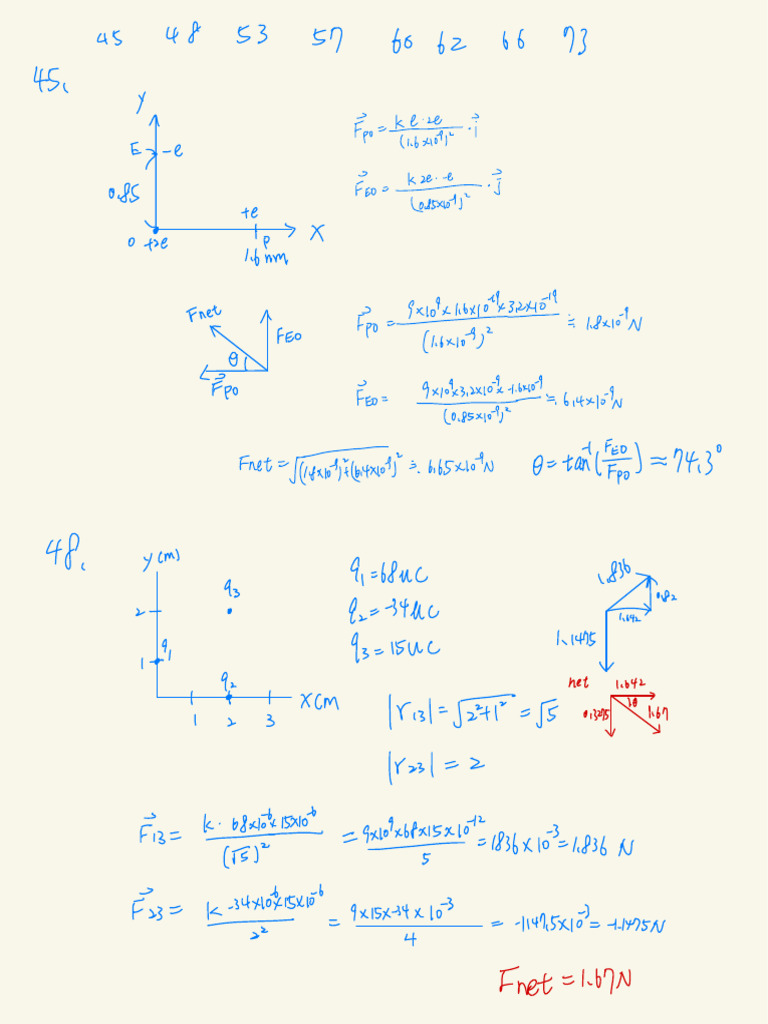 45 48 53 57 60 62 66 73
45.
Y
E -e
0.85
+e
0 +2e P X
1.6 nm
F⃗PO = k e·2e / (1.6×10⁻⁹)² · i⃗
F⃗EO = k 2e·-e / (0.85×10⁻⁹)² · j⃗
Fnet
FEO
θ
F⃗PO
F⃗PO = 9×10⁹×1.6×10⁻¹⁹×3.2×10⁻¹⁹ / (1.6×10⁻⁹)² ≒ 1.8×10⁻⁹N
F⃗EO = 9×10⁹×3.2×10⁻⁹×-1.6×10⁻⁹ / (0.85×10⁻⁹)² ≒ 6.4×10⁻⁹N
Fnet = √(1.8×10⁻⁹)²+(6.4×10⁻⁹)² ≒ 6.65×10⁻⁹N θ = tan⁻¹(FEO/FPO) ≈ 74.3°
48.
Y(m)
q3
2
q1
1
q2
1 2 3 X(m
q1 = 68uC
q2 = -34uC
q3 = 15uC
1.836
0.82
1.642
1.1475
net 1.642
0.3275 θ 1.67
|r13| = √2²+1² = √5
|r23| = 2
F⃗13 = k· 68×10⁻⁶×15×10⁻⁶ / (√5)² = 9×10⁹×68×15×10⁻¹² / 5 = 1836×10⁻³ = 1.836 N
F⃗23 = k -34×10⁻⁶×15×10⁻⁶ / 2² = 9×15×-34×10⁻³ / 4 = -1147.5×10⁻³ = -1.1475N
Fnet = 1.67N